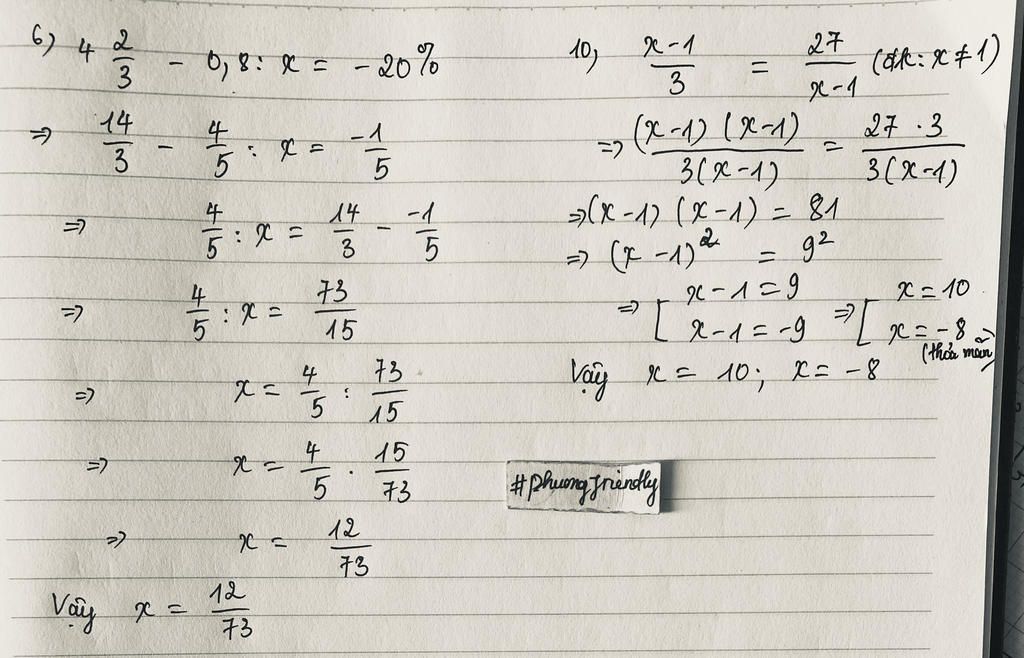 6) 4 2/3 - 0,8 : x = -20%
=> 14/3 - 4/5 : x = -1/5
=> 4/5 : x = 14/3 - -1/5
=> 4/5 : x = 73/15
=> x = 4/5 : 73/15
=> x = 4/5 . 15/73
=> x = 12/73
Vậy x = 12/73
10, x-1/3 = 27/x-1 (đk: x ≠ 1)
=> (x-1) (x-1)/3(x-1) = 27 . 3/3(x-1)
=> (x-1) (x-1) = 81
=> (x-1)² = 9²
=> [ x-1 = 9 => [ x = 10
x-1 = -9 x = -8
(thỏa mãn)
Vậy x = 10; x = -8
#phuongfriendly